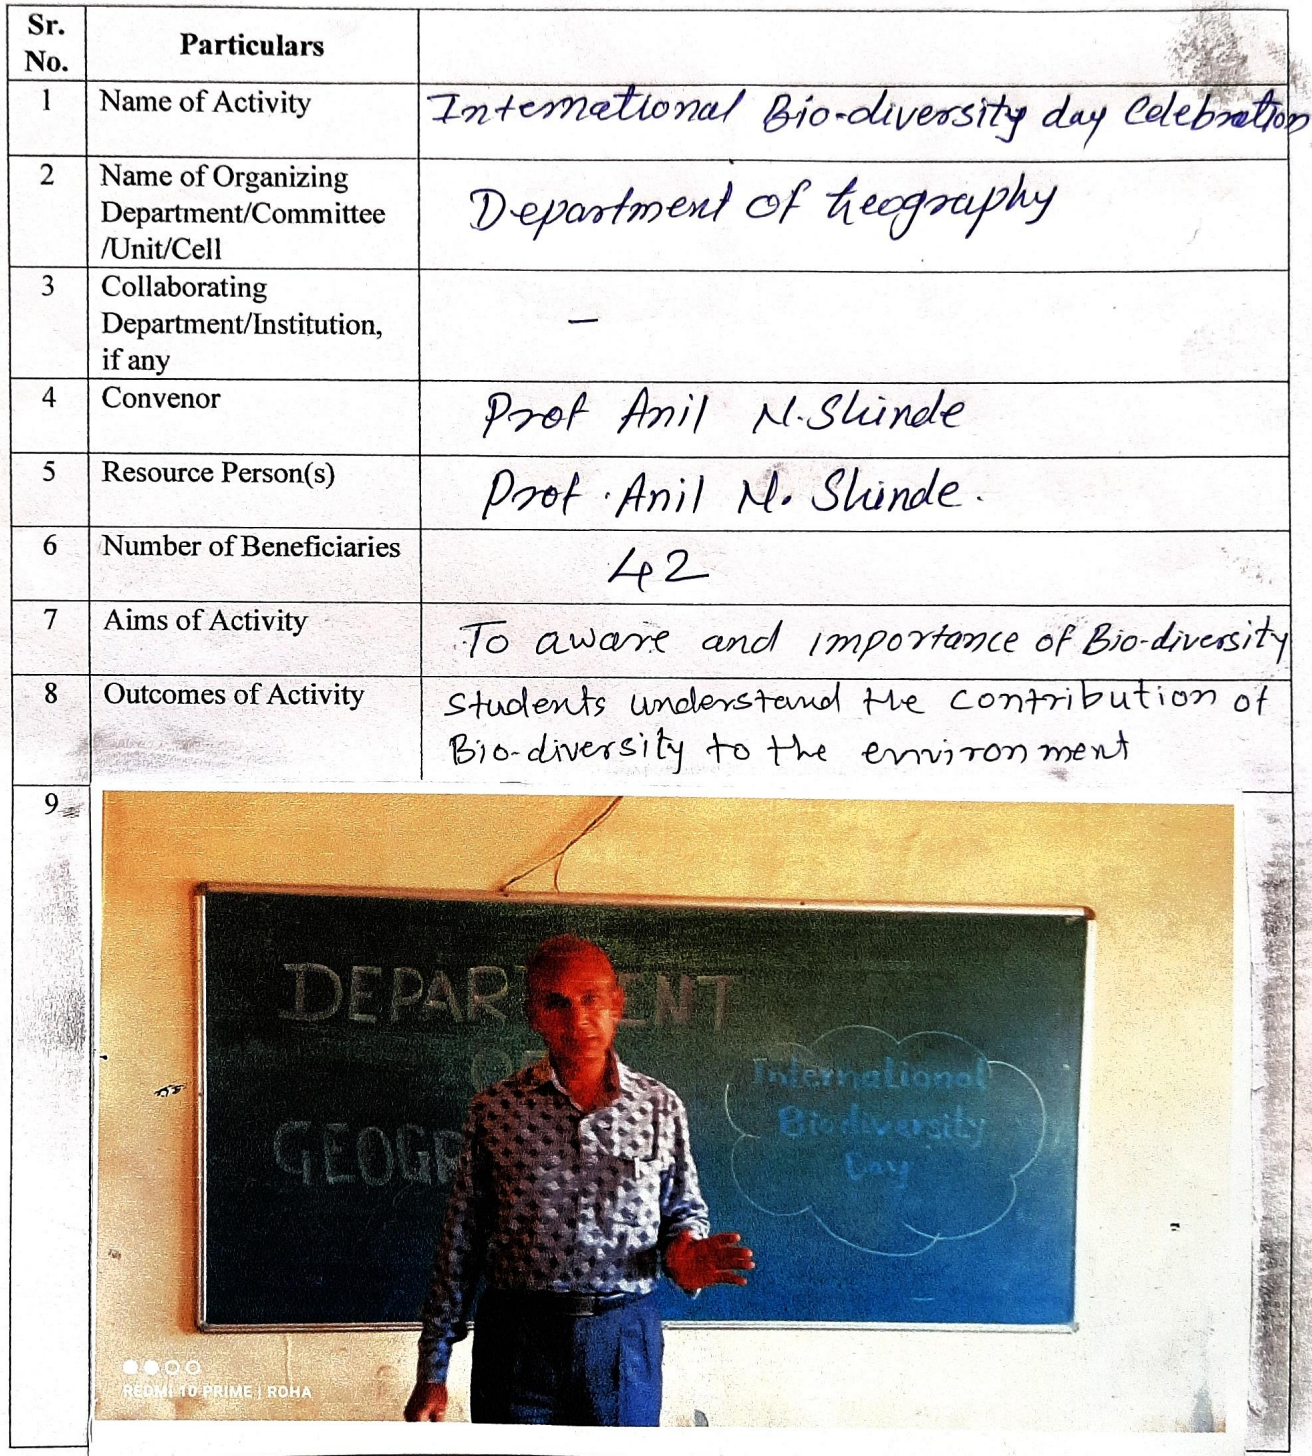 Sr.
No.
Particulars
1
Name of Activity
International Bio-diversity day Celebration
2
Name of Organizing
Department/Committee
/Unit/Cell
Department of Geography
3
Collaborating
Department/Institution,
if any
–
4
Convenor
Prof Anil N. Shinde
5
Resource Person(s)
Prof. Anil N. Shinde.
6
Number of Beneficiaries
42
7
Aims of Activity
To aware and importance of Bio-diversity
8
Outcomes of Activity
Students understand the contribution of
Bio-diversity to the environment
9
DEPAR ENT
OF
GEOGR
International
Biodiversity
Day
REDMI 10 PRIME | ROHA